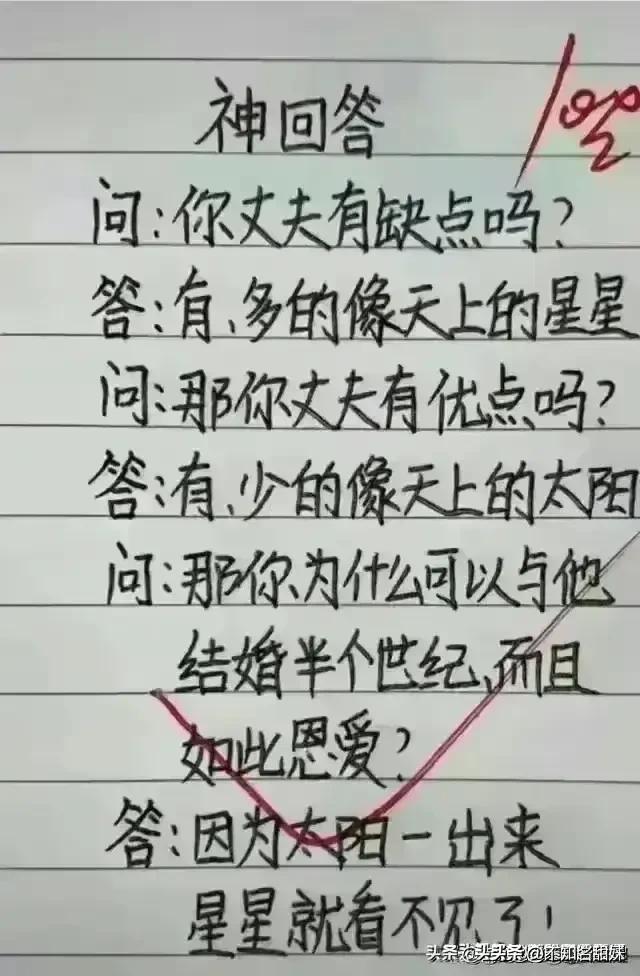 神回答
问:你丈夫有缺点吗?
答:有、多的像天上的星星
问:那你丈夫有优点吗?
答:有、少的像天上的太阳
问:那你为什么可以与他
结婚半个世纪、而且
如此恩爱?
答:因为太阳一出来
星星就看不见了!